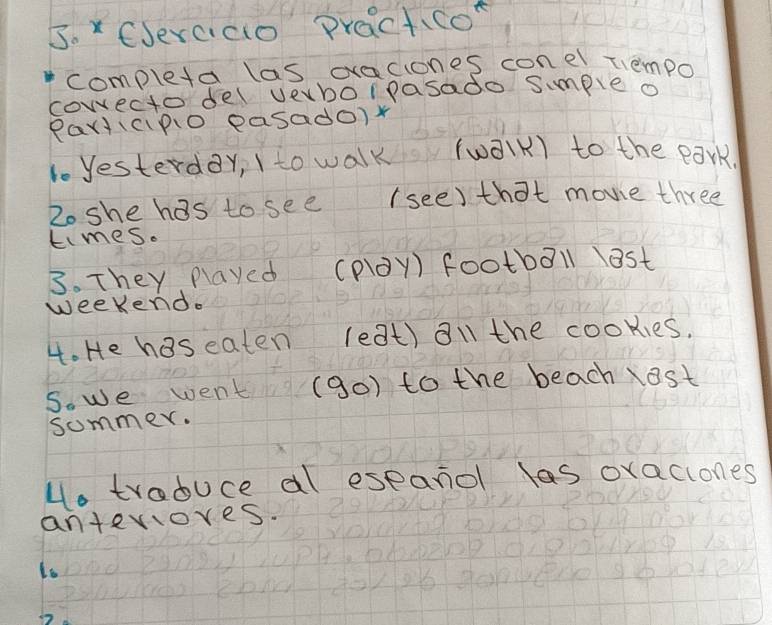 3.* Ejercicio Práctico*
• completa las oraciones con el tiempo
correcto del verbo (pasado simple o
Participio pasado)*
1. Yesterday, I to walk (walk) to the park.
2. she has to see (see) that movie three
times.
3. They played (play) football last
weekend.
4. He has eaten (eat) all the cookies.
5. we went (go) to the beach last
summer.
4. traduce al español las oraciones
anteriores.
1.
2.